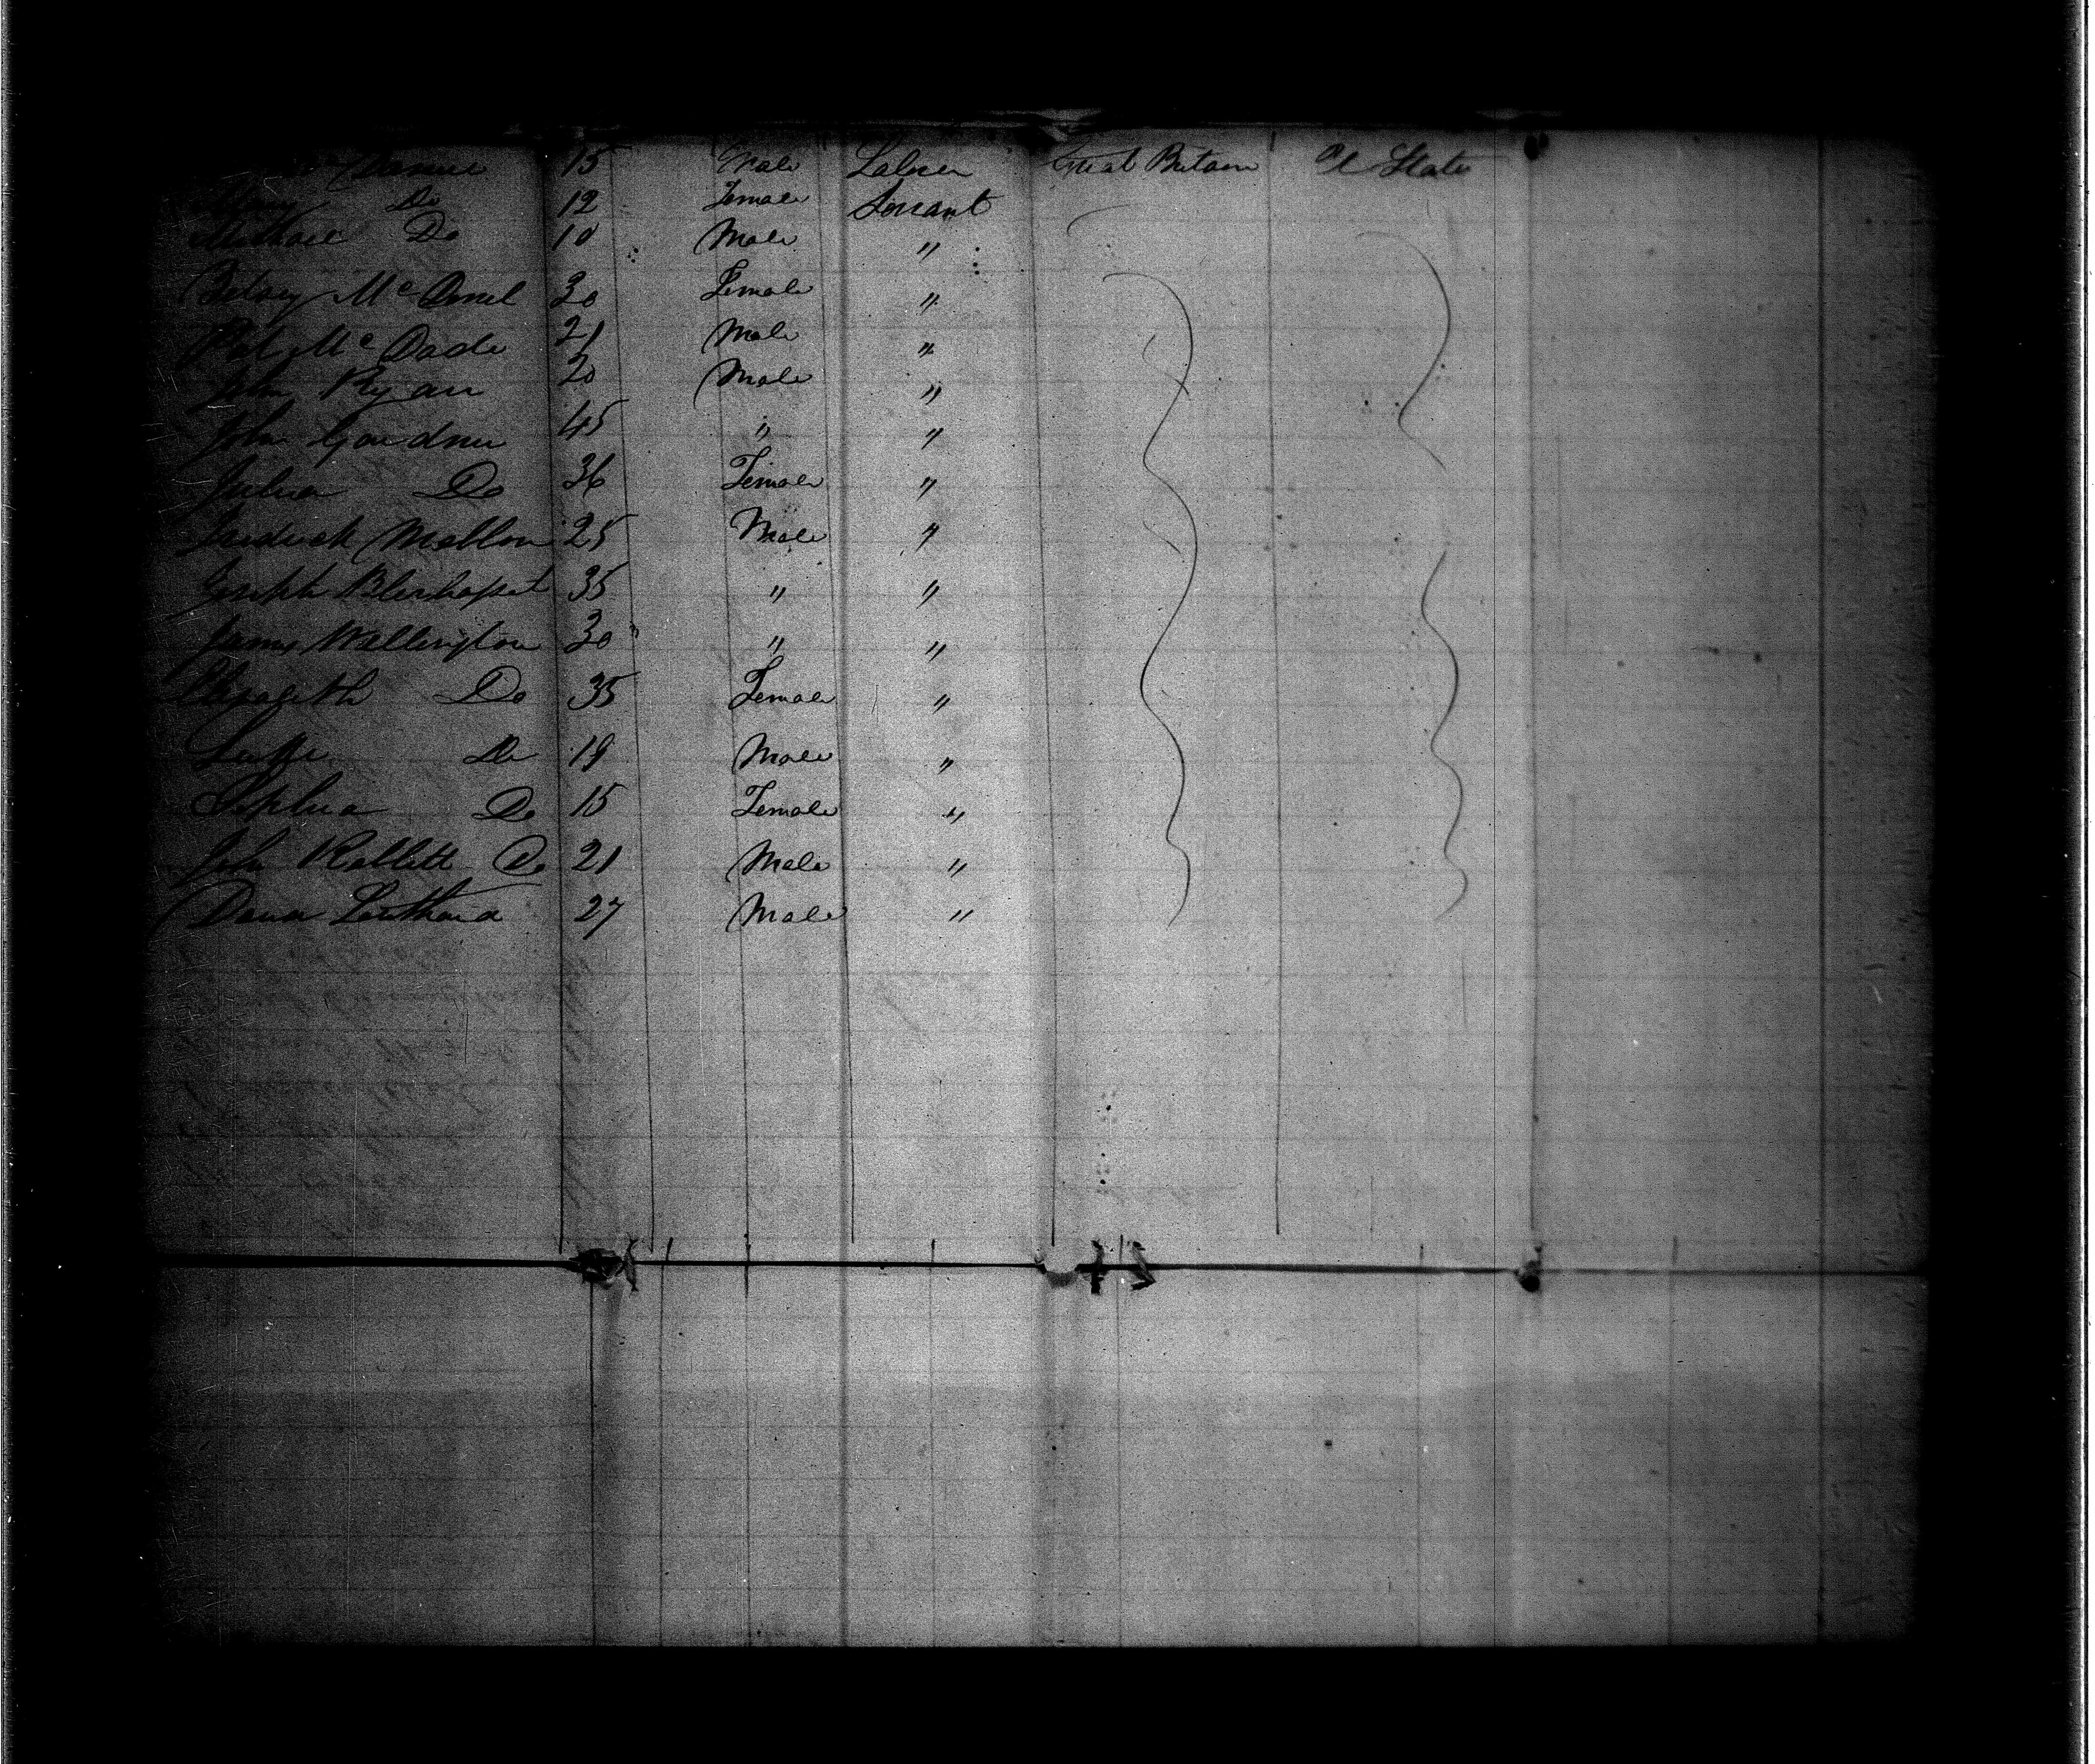 15 Male Laborer Great Britain U States
Mary Do 12 Female Servant
Michael Do 10 Male "
Betsey McDonel 30 Female "
Pat McDade 21 Male "
John Ryan 20 Male "
John Gardner 45 " "
Julia Do 36 Female "
Mallon 25 Male "
Joseph 35 " "
James Wellington 30 " "
Elizabeth Do 35 Female "
Do 19 Male "
Sophia Do 15 Female "
John Rallett Do 21 Male "
27 Male "